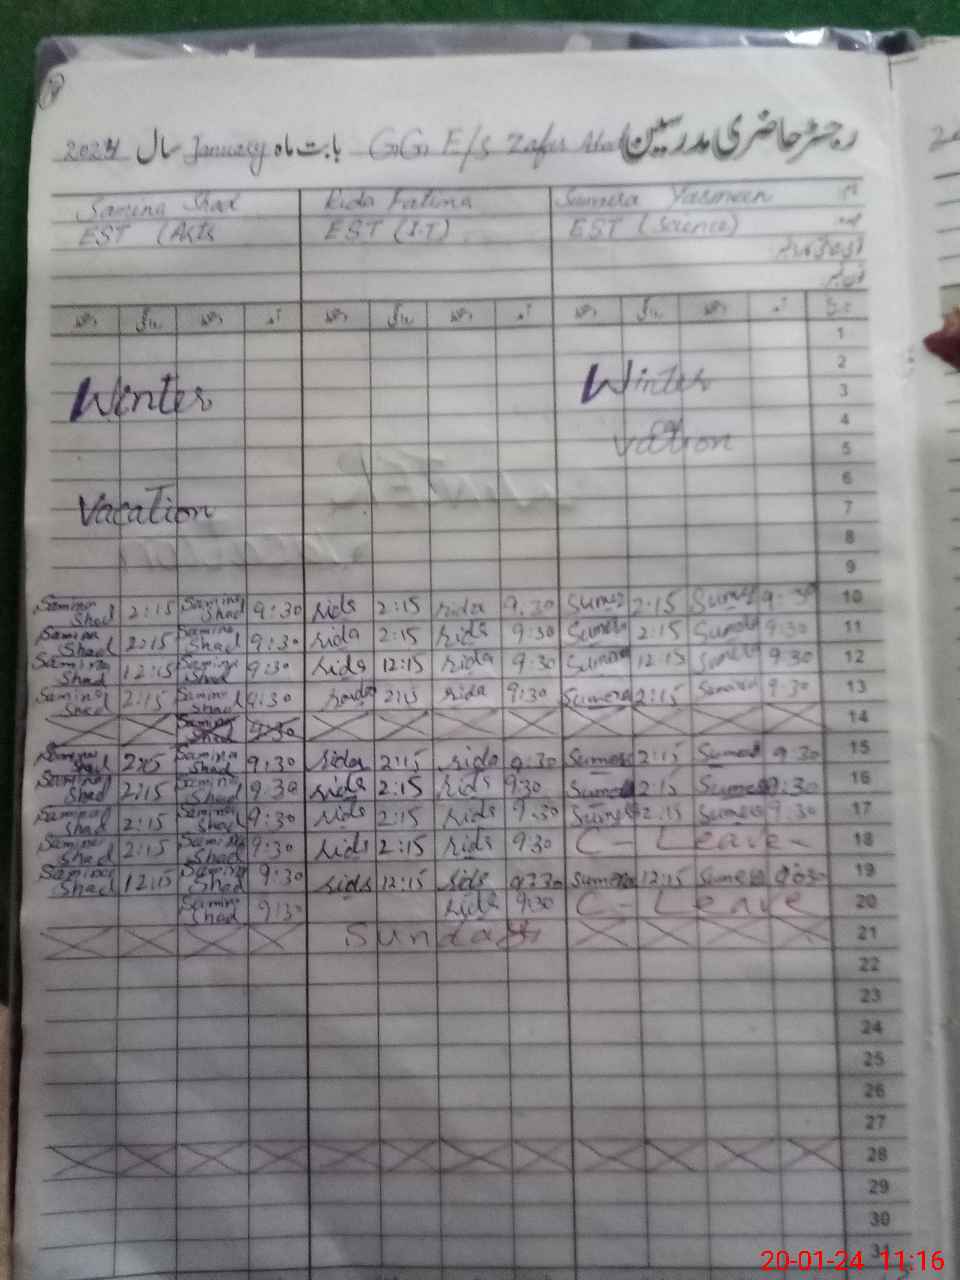 رجسٹر حاضری مدرسین G.G. E/S Zafar Abad بابت ماہ January سال 2024
Samina Shad Rida Fatima Sumera Yasmeen نام
EST (Arts EST (I.T) EST (Science) عہدہ
دستخط روانگی دستخط آمد دستخط روانگی دستخط آمد دستخط روانگی دستخط آمد تاریخ
1
2
Winter Winter 3
4
vacation 5
6
Vacation WINTER 7
8
9
Samina Shad 2:15 Samina Shad 9:30 rida 2:15 rida 9:30 Sumera 2:15 Sumera 9:30 10
Samina Shad 2:15 Samina Shad 9:30 rida 2:15 rida 9:30 Sumera 2:15 Sumera 9:30 11
Samina Shad 12:15 Samina Shad 9:30 rida 12:15 rida 9:30 Sumera 12:15 Sumera 9:30 12
Samina Shad 2:15 Samina Shad 9:30 rida 2:15 rida 9:30 Sumera 2:15 Sumera 9:30 13
Samina Shad 9:30 14
Samina Shad 2:15 Samina Shad 9:30 rida 2:15 rida 9:30 Sumera 2:15 Sumera 9:30 15
Samina Shad 2:15 Samina Shad 9:30 rida 2:15 rida 9:30 Sumera 2:15 Sumera 9:30 16
Samina Shad 2:15 Samina Shad 9:30 rida 2:15 rida 9:30 Sumera 2:15 Sumera 9:30 17
Samina Shad 2:15 Samina Shad 9:30 rida 2:15 rida 9:30 C-Leave 18
Samina Shad 12:15 Samina Shad 9:30 rida 12:15 rida 9:30 Sumera 12:15 Sumera 9:30 19
Samina Shad 9:30 rida 9:30 C-Leave 20
Sunday 21
22
23
24
25
26
27
28
29
30
31
20-01-24 11:16